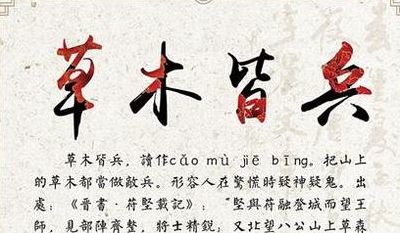 草木皆兵
草木皆兵，讀作cǎo mù jiē bīng。把山上
的草木都當做敵兵。形容人在驚慌時疑神疑鬼。出
處：《晉書·符堅載記》：“堅與符融登城而望王
師，見部陣齊整，將士精銳；又北望八公山上草森